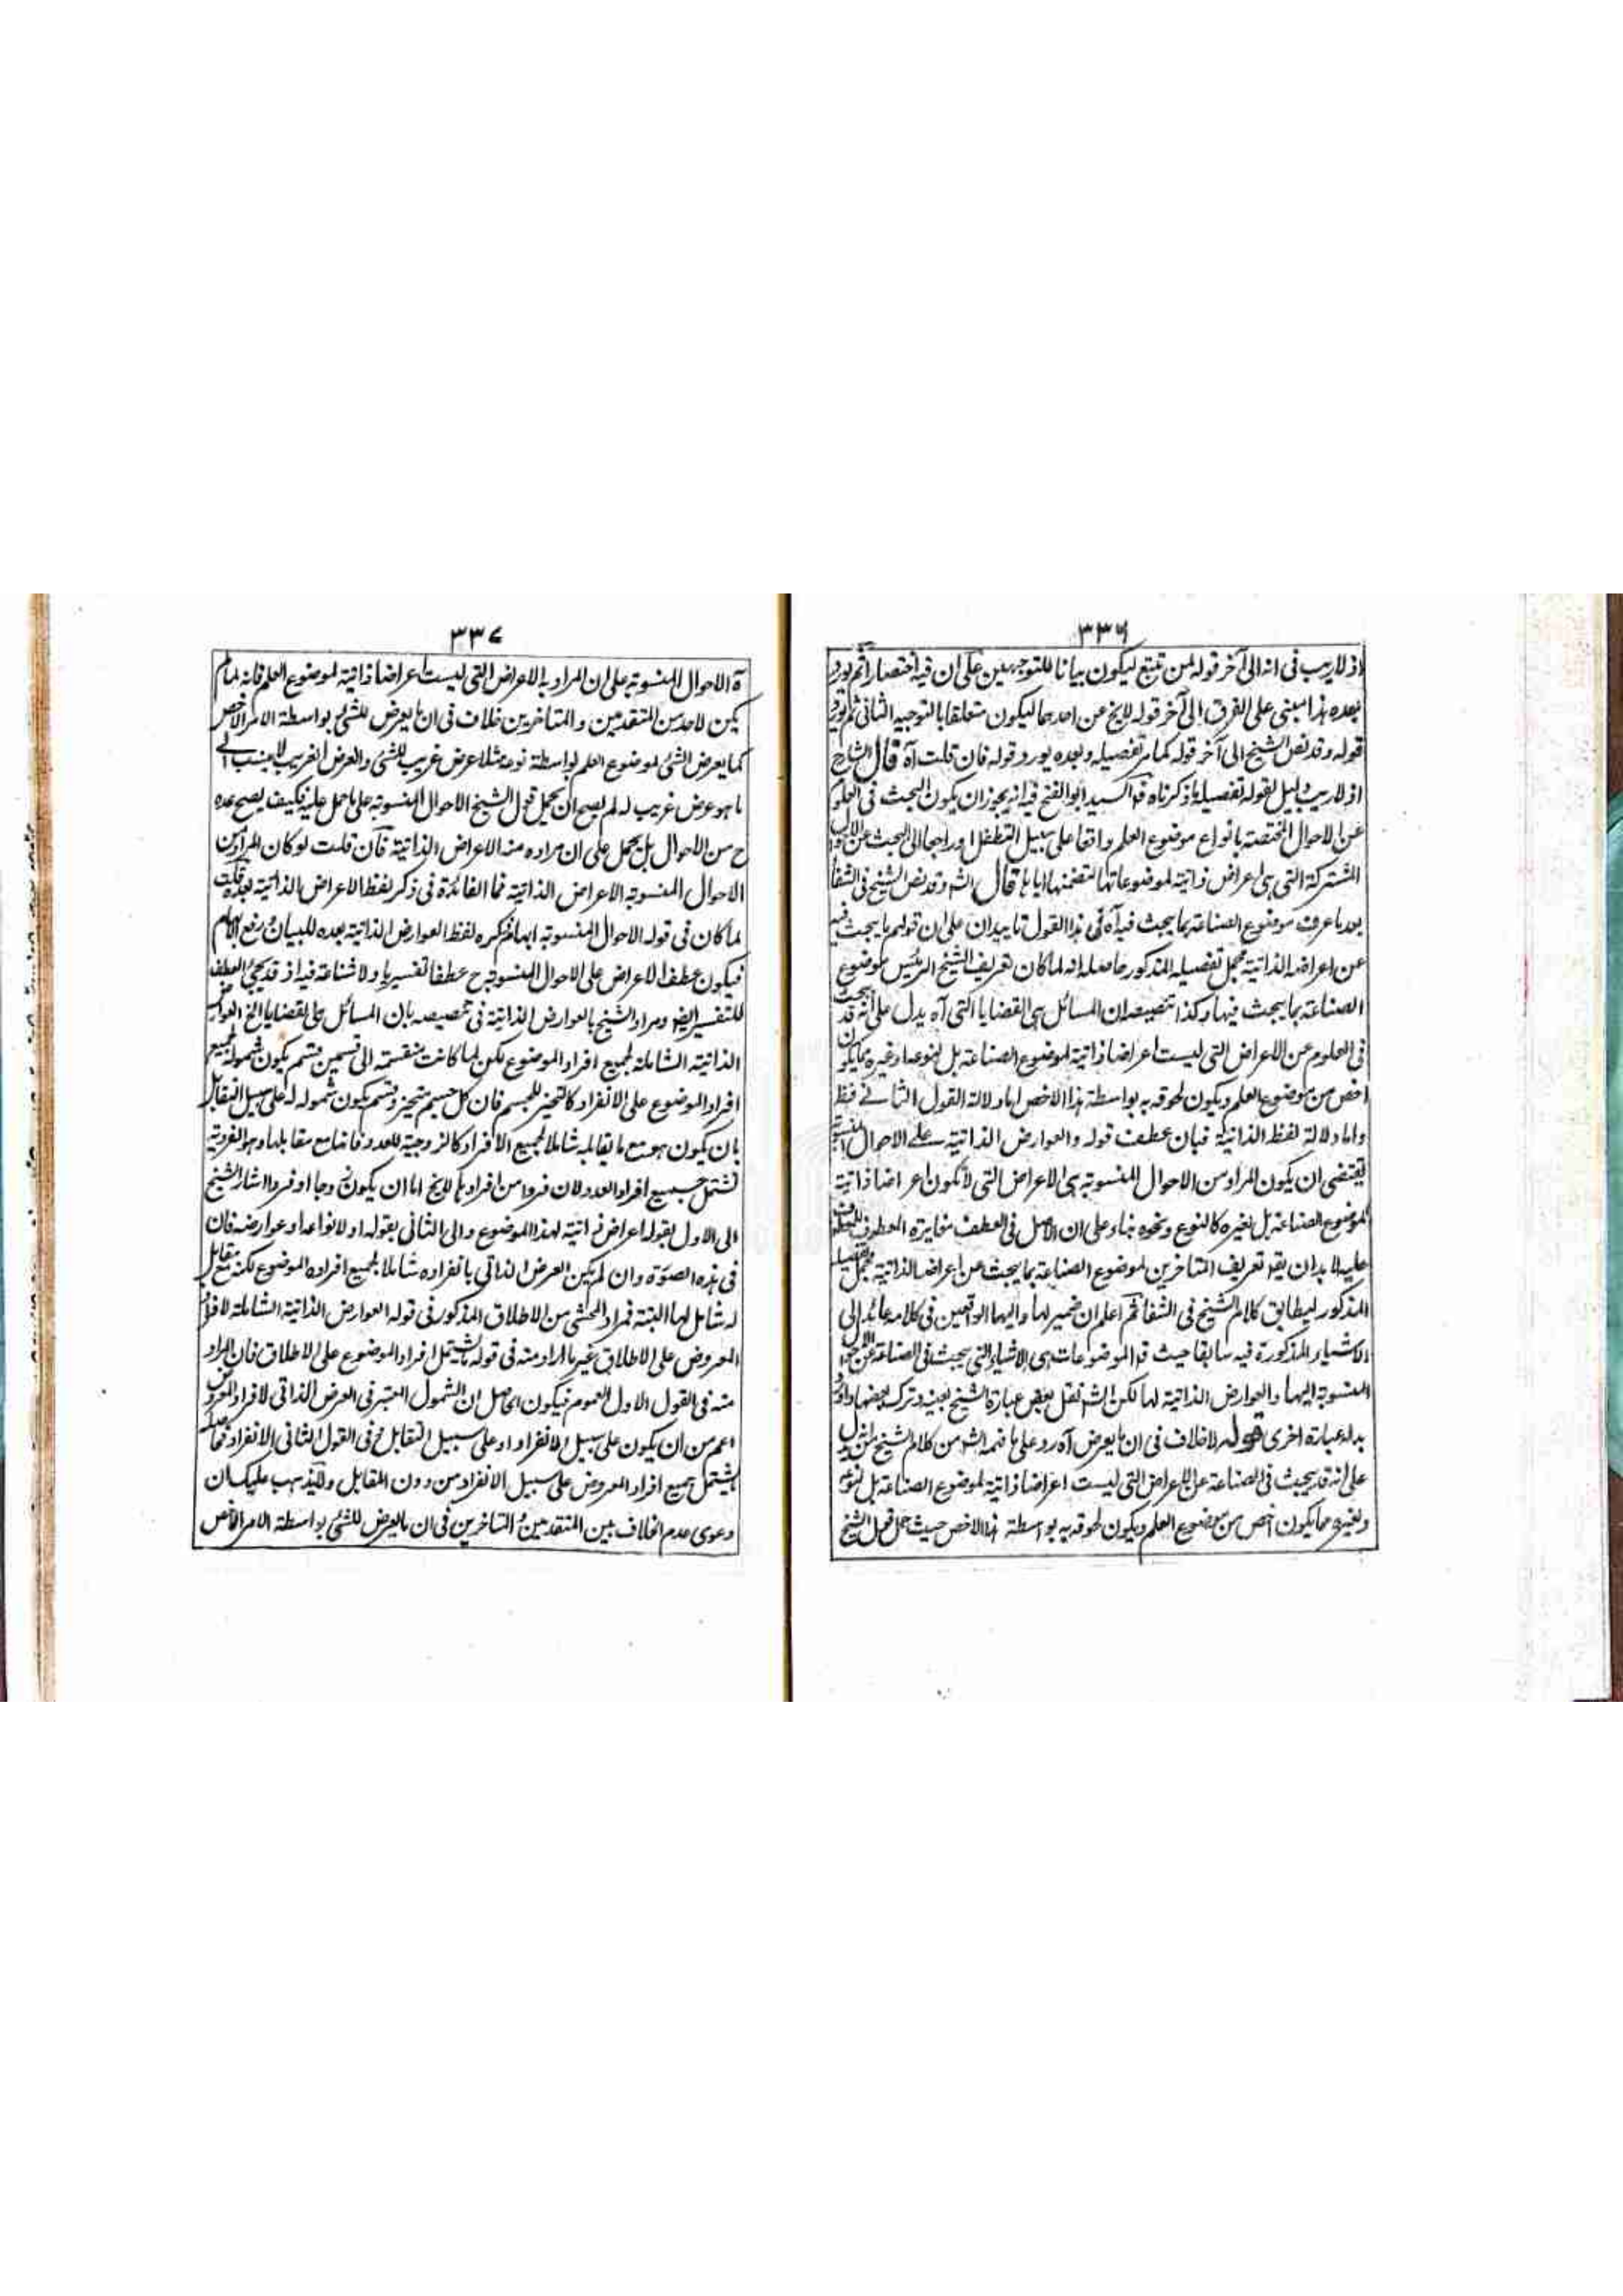 ٣٣٦
اذ لا ريب فى انه الى آخر قوله لمن تتبع ليكون بيانا للتوجيهين على ان فيه اختصارا ثم يورد
بعده هذا مبنى على الفرق الى آخر قوله لا يخ عن احدهما ليكون متعلقا بالتوجيه الثانى ثم يورد
قوله وقد نص الشيخ الى آخر قوله كما مر تفصيله وبعده يورد قوله فان قلت آه قال الشارح
اذ لا ريب دليل لقوله تفصيله ما ذكرناه قد السيد ابو الفتح فيه انه يجوز ان يكون البحث فى العلوم
عن الاحوال المختصة بانواع موضوع العلم واقعا على سبيل التطفل او راجعا الى البحث عن الاحوال
المشتركة التى هى اعراض ذاتية لموضوعاتها لتضمنها اياها قال الشه وقد نص الشيخ فى الشفا
بعد ما عرف موضوع الصناعة بما يبحث فيه آه فى هذا القول تاييدان على ان قولهم ما يبحث فيه
عن اعراضه الذاتية مجمل تفصيله المذكور حاصله انه لما كان تعريف الشيخ الرئيس لموضوع
الصناعة بما يبحث فيها وكذا تنصيصه ان المسائل هى القضايا التى آه يدل على انه قد يبحث
فى العلوم عن الاعراض التى ليست اعراضا ذاتية لموضوع الصناعة بل لنوعها وغيره مما يكون
اخص من موضوع العلم ويكون لحوقه به بواسطة هذا الاخص اما دلالة القول الثانى فظ
واما دلالة لفظ الذاتية فبان عطف قوله والعوارض الذاتية على الاحوال المنسوبة
يقتضى ان يكون المراد من الاحوال المنسوبة هى الاعراض التى لا تكون اعراضا ذاتية
لموضوع الصناعة بل لغيره كالنوع ونحوه بناء على ان الاصل فى العطف مغايرة المعطوف للمعطوف
عليه لا بد ان يقع تعريف المتاخرين لموضوع الصناعة بما يبحث عن اعراضه الذاتية مجمل تفصيله
المذكور ليطابق كلام الشيخ فى الشفا ثم اعلم ان ضمير لها واليها الواقعين فى كلامه عائد الى
الاشياء المذكورة فيه سابقا حيث قد الموضوعات هى الاشياء التى يبحث فى الصناعة عن الاحوال
المنسوبة اليها والعوارض الذاتية لها لكن الشه نقل بعض عبارة الشيخ بعينه وترك بعضها واورد
بدله عبارة اخرى قوله لا خلاف فى ان ما يعرض آه رد على ما فهمه الشه من كلام الشيخ
على انه قد يبحث فى الصناعة عن الاعراض التى ليست اعراضا ذاتية لموضوع الصناعة بل لنوعه
ولغيره مما يكون اخص من موضوع العلم ويكون لحوقه به بواسطة هذا الاخص حيث حمل قول الشيخ
٣٣٧
آه الاحوال المنسوبة على ان المراد به الاعراض التى ليست اعراضا ذاتية لموضوع العلم فانه لما لم
يكن لاحد من المتقدمين والمتاخرين خلاف فى ان ما يعرض للشئ بواسطة الامر الاخص
كما يعرض الشئ لموضوع العلم بواسطة نوعه مثلا عرض غريب للشئ والعرض الغريب لا ينسب الى
ما هو عرض غريب له لم يصح ان يحمل قول الشيخ الاحوال المنسوبة على ما حمل عليه فكيف يصح عده
ح من الاحوال بل يحمل على ان مراده منه الاعراض الذاتية فان قلت لو كان المراد من
الاحوال المنسوبة الاعراض الذاتية فما الفائدة فى ذكر لفظ الاعراض الذاتية بعده قلت
لما كان فى قوله الاحوال المنسوبة ابهام ذكره لفظ العوارض الذاتية بعده للبيان ورفع الابهام
فيكون عطف الاعراض على الاحوال المنسوبة ح عطفا تفسيريا ولا شناعة فيه اذ قد يجئ العطف
للتفسير ايضا ومراد الشيخ بالعوارض الذاتية فى تنصيصه بان المسائل هى القضايا الخ العوارض
الذاتية الشاملة لجميع افراد الموضوع لكن لما كانت منقسمة الى قسمين قسم يكون شموله لجميع
افراد الموضوع على الانفراد كالتحيز للجسم فان كل جسم متحيز وقسم يكون شموله له على سبيل التقابل
بان يكون هو مع ما يقابله شاملا لجميع الافراد كالزوجية للعدد فانها مع مقابلها وهو الفردية
تشتمل جميع افراد العدد لان فردا من افراده لا يخ اما ان يكون زوجا او فردا اشار الشيخ
الى الاول بقوله اعراض ذاتية لهذا الموضوع والى الثانى بقوله او لانواعه او عوارضه فان
فى هذه الصورة وان لم يكن العرض الذاتى بانفراده شاملا لجميع افراده الموضوع لكنه مع مقابل
له شامل لها البتة فمراد المحشى من الاطلاق المذكور فى قوله العوارض الذاتية الشاملة لافراد
المعروض على الاطلاق غير ما اراد منه فى قوله ما يشتمل افراد الموضوع على الاطلاق فان المراد
منه فى القول الاول العموم فيكون الحاصل ان الشمول المعتبر فى العرض الذاتى لافراد المعروض
اعم من ان يكون على سبيل الانفراد او على سبيل التقابل وفى القول الثانى الانفراد
ما يشتمل جميع افراد المعروض على سبيل الانفراد من دون المقابل ولا يذهب عليك ان
دعوى عدم الخلاف بين المتقدمين والمتاخرين فى ان ما يعرض للشئ بواسطة الامر الخاص